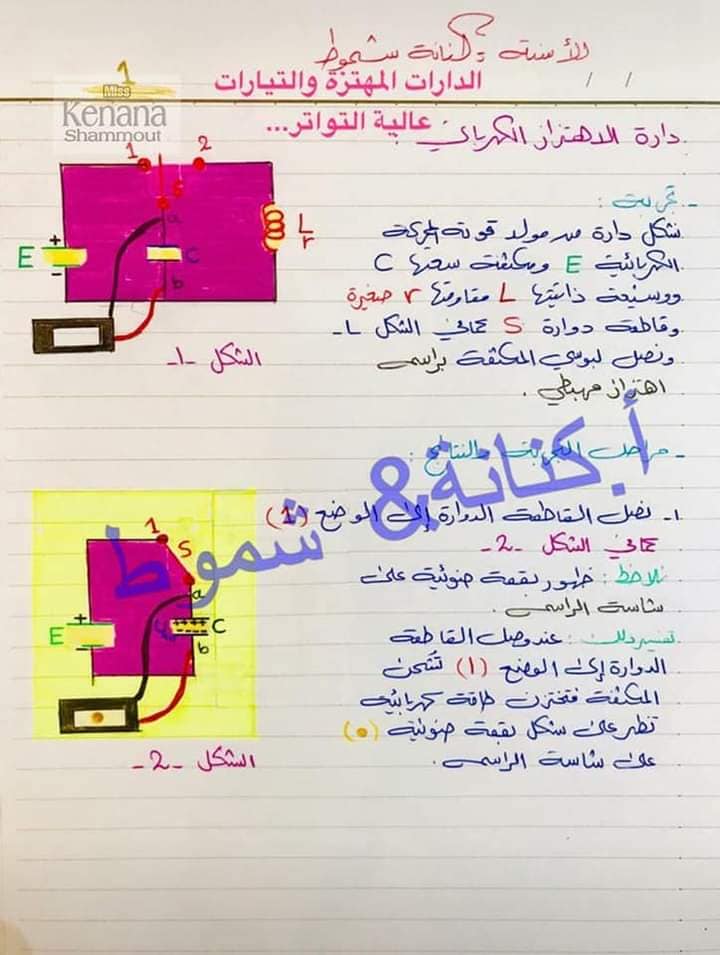 الأنسة: كنانة شموط
1
Miss
Kenana
Shammout
الدارات المهتزة والتيارات
عالية التواتر...
/ /
دارة الاهتزاز الكهربائي:
- تجربة:
نشكل دارة من مولد قوته المحركة
الكهربائية E ومكثفة سعتها C
ووشيعة ذاتيتها L مقاومتها r صغيرة
وقاطعة دوارة S كما في الشكل -1-
ونصل لبوسي المكثفة براسم
اهتزاز مهبطي.
1 2
S
a
E + - C
b
L
r
الشكل -1-
- مراحل التجربة والنتائج:
أ.كنانة & شموط
1- نصل القاطعة الدوارة إلى الموضع (1)
كما في الشكل -2-
نلاحظ: ظهور بقعة ضوئية على
شاشة الراسم.
تفسير ذلك: عند وصل القاطعة
الدوارة إلى الموضع (1) تُشحن
المكثفة فتختزن طاقة كهربائية
تظهر على شكل بقعة ضوئية (•)
على شاشة الراسم.
1
S
a
E + C
b
الشكل -2-